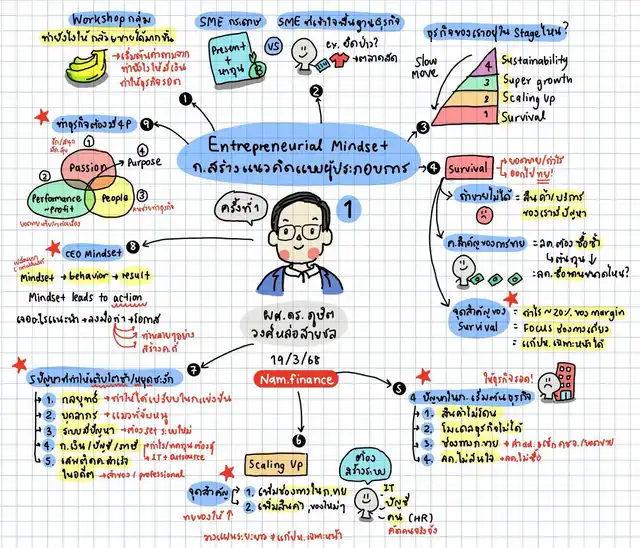 Workshop กลุ่ม
ทำยังไงให้ กล้วยขายได้มากขึ้น
→เริ่มต้นคำถามจาก
ทำยังไงให้มีเงิน
ทำให้ธุรกิจรอด
1
SME กระดาษ
Present
+
หาทุน
VS
SME ที่เข้าใจพื้นฐานธุรกิจ
ex. ยืดป่าว?
→ตลาดสด
2
ธุรกิจของเราอยู่ใน Stage ไหน?
Slow
move
4 Sustainability
3 Super growth
2 Scaling Up
1 Survival
3
Entrepreneurial Mindset
ก.สร้างแนวคิดแบบผู้ประกอบการ
ครั้งที่ 1
1
ผศ.ดร.ภูษิต
วงศ์หล่อสายชล
19/3/68
Nam.finance
4
Survival
→ยอดขาย/กำไร
ออกไป ขาย!
ถ้าขายไม่ได้ = สินค้า/บริการ
ของเรามีปัญหา
ค.สำคัญของการขาย = ลค. ต้อง ซื้อซ้ำ
↳ต้นทุน↓
=ลค. ซื้อตอนขาดไหม?
จุดสำคัญของ
Survival
= กำไร ~20% ของ margin
= FOCUS ช่องทางเดียว
= แก้ปห.เฉพาะหน้าได้
5
ให้ธุรกิจรอด!
4 ปัญหาใน ก.เริ่มต้นธุรกิจ
1. สินค้าไม่โดน
2. โมเดลธุรกิจไม่ได้
3. ช่องทาง ก.ขาย
4. ลค.ไม่สนใจ →ลค.ไม่ซื้อ
6
Scaling Up
จุดสำคัญ
1. เพิ่มช่องทางใน ก.ขาย
2. เพิ่มสินค้า, ของใหม่ๆ
ขายของให้ ↑
วางแผนระยะยาว ≠ แก้ปห.เฉพาะหน้า
ต้อง
สร้างระบบ
IT
บัญชี
คน (HR)
7
5 ปัญหาที่ทำให้เติบโตช้า/หยุดชะงัก
1. กลยุทธ์ →ทำให้ได้เปรียบใน ก.แข่งขัน
2. บุคลากร
3. ระบบมีปัญหา →ต้อง set ระบบใหม่
4. ก.เงิน/บัญชี/ภาษี
IT + outsource
5. เสพติด ค.สำเร็จ
ในอดีต
8
CEO Mindset
Mindset → behavior → result
Mindset leads to action
เจออะไรแนะนำ → ลงมือทำ → โอกาส
ทำหลายๆอย่าง
9
ทำธุรกิจต้องมี 4P
1
Passion
4
Purpose
2
Performance
→ Profit
3
People